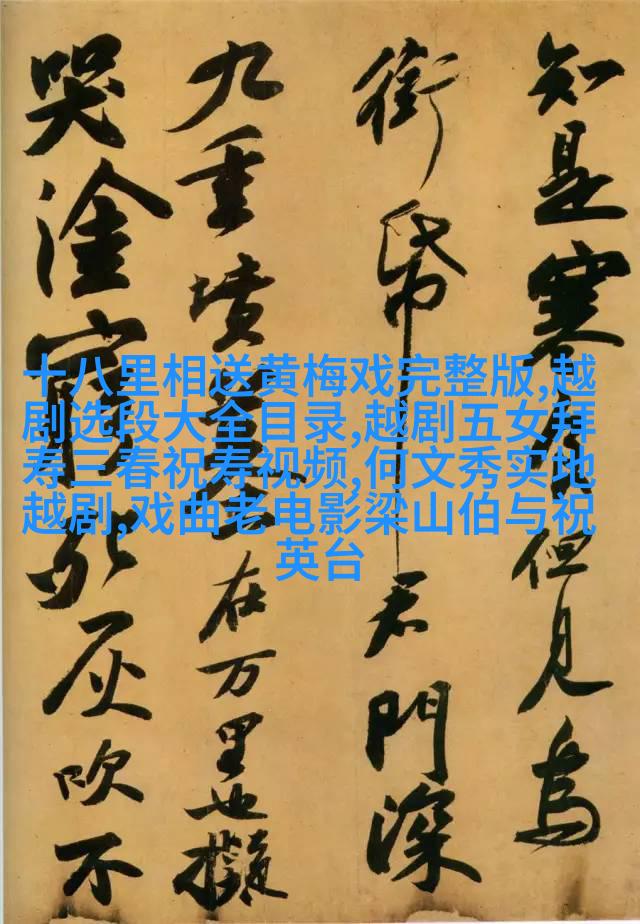 知是寒食但見烏
銜帋君門深
九重墳墓在万里也擬
哭塗窮死灰吹不
十八里相送黄梅戏完整版,越
剧选段大全目录,越剧五女拜
寿三春祝寿视频,何文秀实地
越剧,戏曲老电影梁山伯与祝
英台